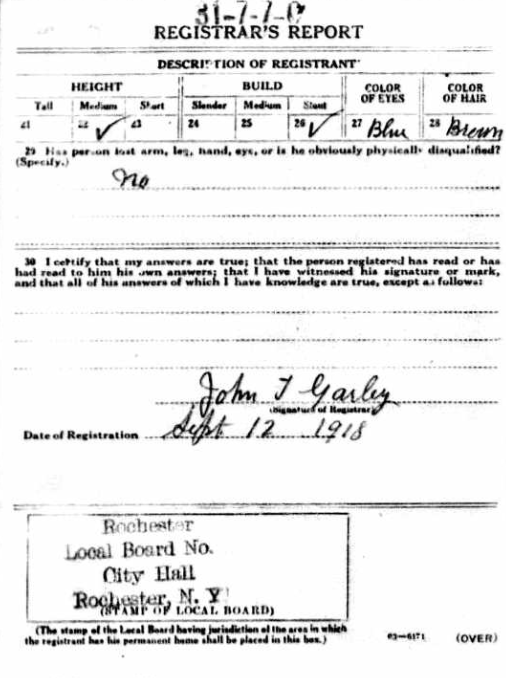 31-7-7-C
REGISTRAR'S REPORT
DESCRIPTION OF REGISTRANT
HEIGHT BUILD COLOR OF EYES COLOR OF HAIR
Tall Medium Short Slender Medium Stout
21 22 ✓ 23 24 25 26 ✓ 27 Blue 28 Brown
29 Has person lost arm, leg, hand, eye, or is he obviously physically disqualified?
(Specify.)
No
30 I certify that my answers are true; that the person registered has read or has
had read to him his own answers; that I have witnessed his signature or mark,
and that all of his answers of which I have knowledge are true, except as follows:
John T Garley
(Signature of Registrar)
Date of Registration Sept 12 1918
Rochester
Local Board No.
City Hall
Rochester, N. Y
(STAMP OF LOCAL BOARD)
(The stamp of the Local Board having jurisdiction of the area in which
the registrant has his permanent home shall be placed in this box.)
03—6171 (OVER)